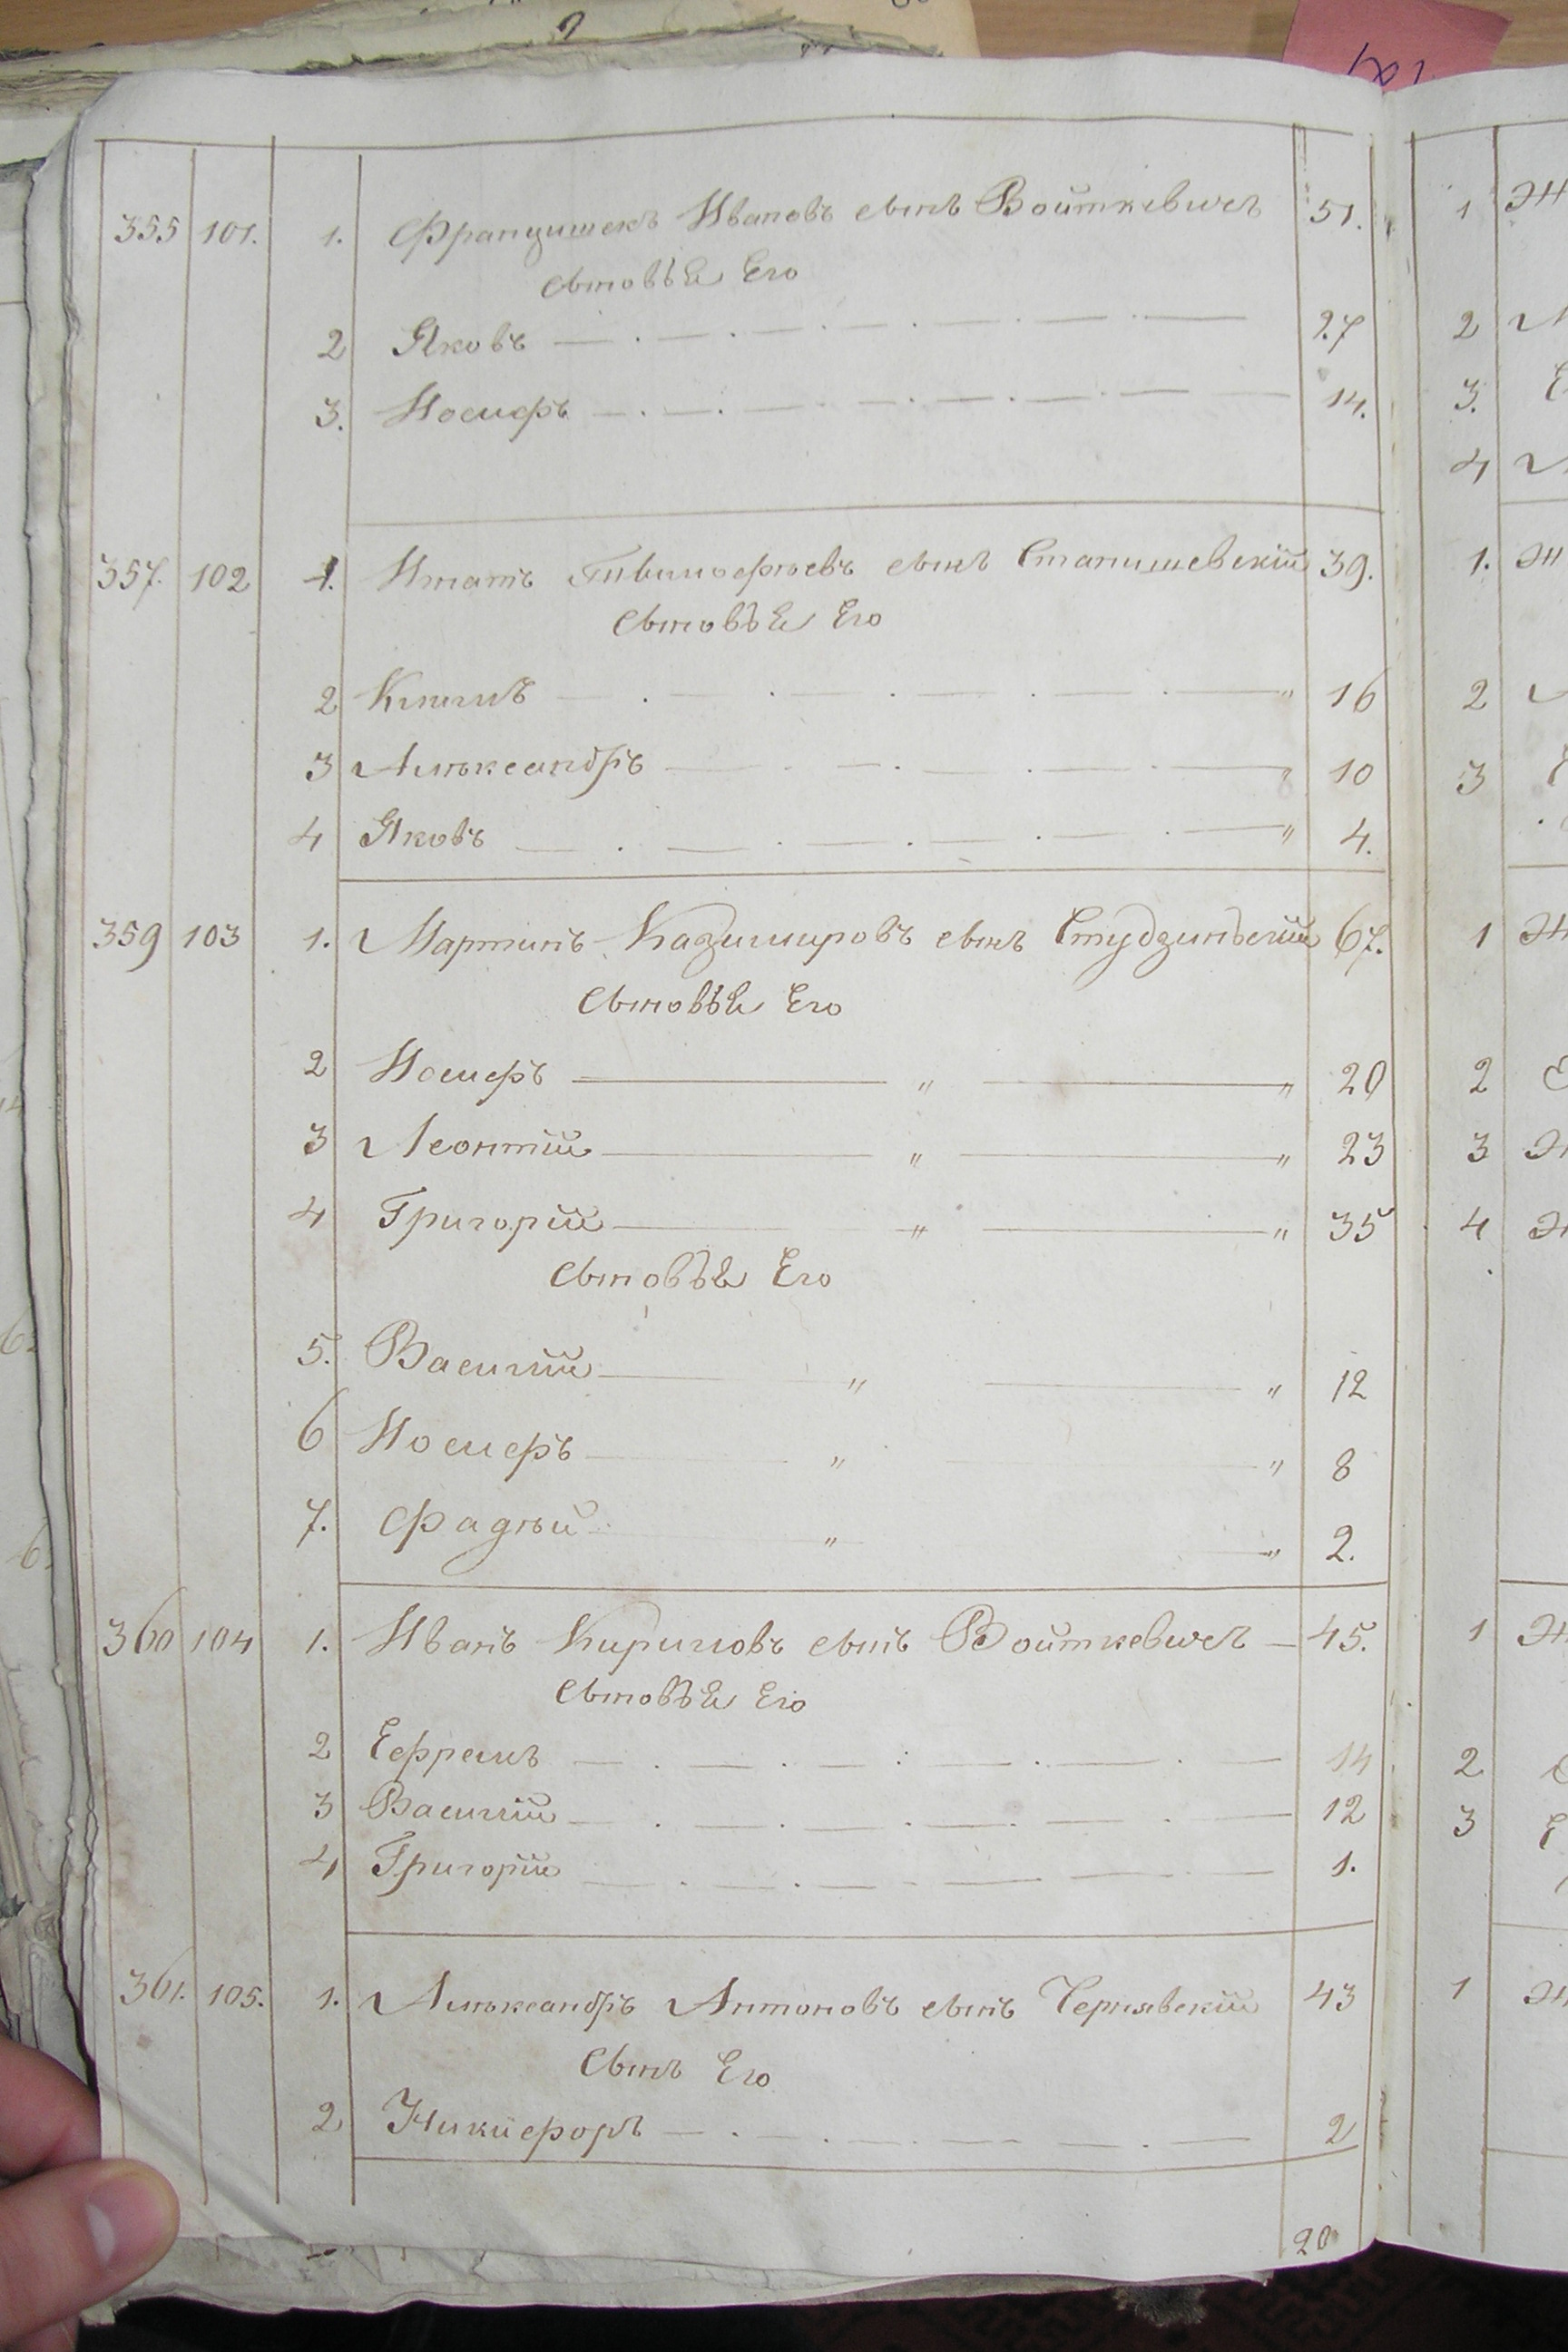 355 101. 1. Францишекъ Ивановъ сынъ Войткевичъ 51.
сыновья Его
2 Яковъ 27
3. Иосифъ 14.
357. 102 1. Игнатъ сынъ Станишевскій 39.
сыновья Его
2 16
3 Алѣксандръ 10
4 Яковъ 4.
359 103 1. Мартинъ Казимировъ сынъ Студзиньскій 67.
сыновья Его
2 Иосифъ " " 20
3 Леонтій " " 23
4 Григорій " " 35
сыновья Его
5. Василій " " 12
6 Иосифъ " " 8
7. Фадѣй " " 2.
360 104 1. Иванъ Кириловъ сынъ Войткевичъ 45.
сыновья Его
2 Ефремъ 14
3 Василій 12
4 Григорій 1.
361. 105. 1. Алѣксандръ Антоновъ сынъ Чернявскій 43
сынъ Его
2 Никифоръ 2
20
1 Ж
2
3.
4
1. Ж
2
3
1 Ж
2
3
4
1 Ж
2
3
1 Ж